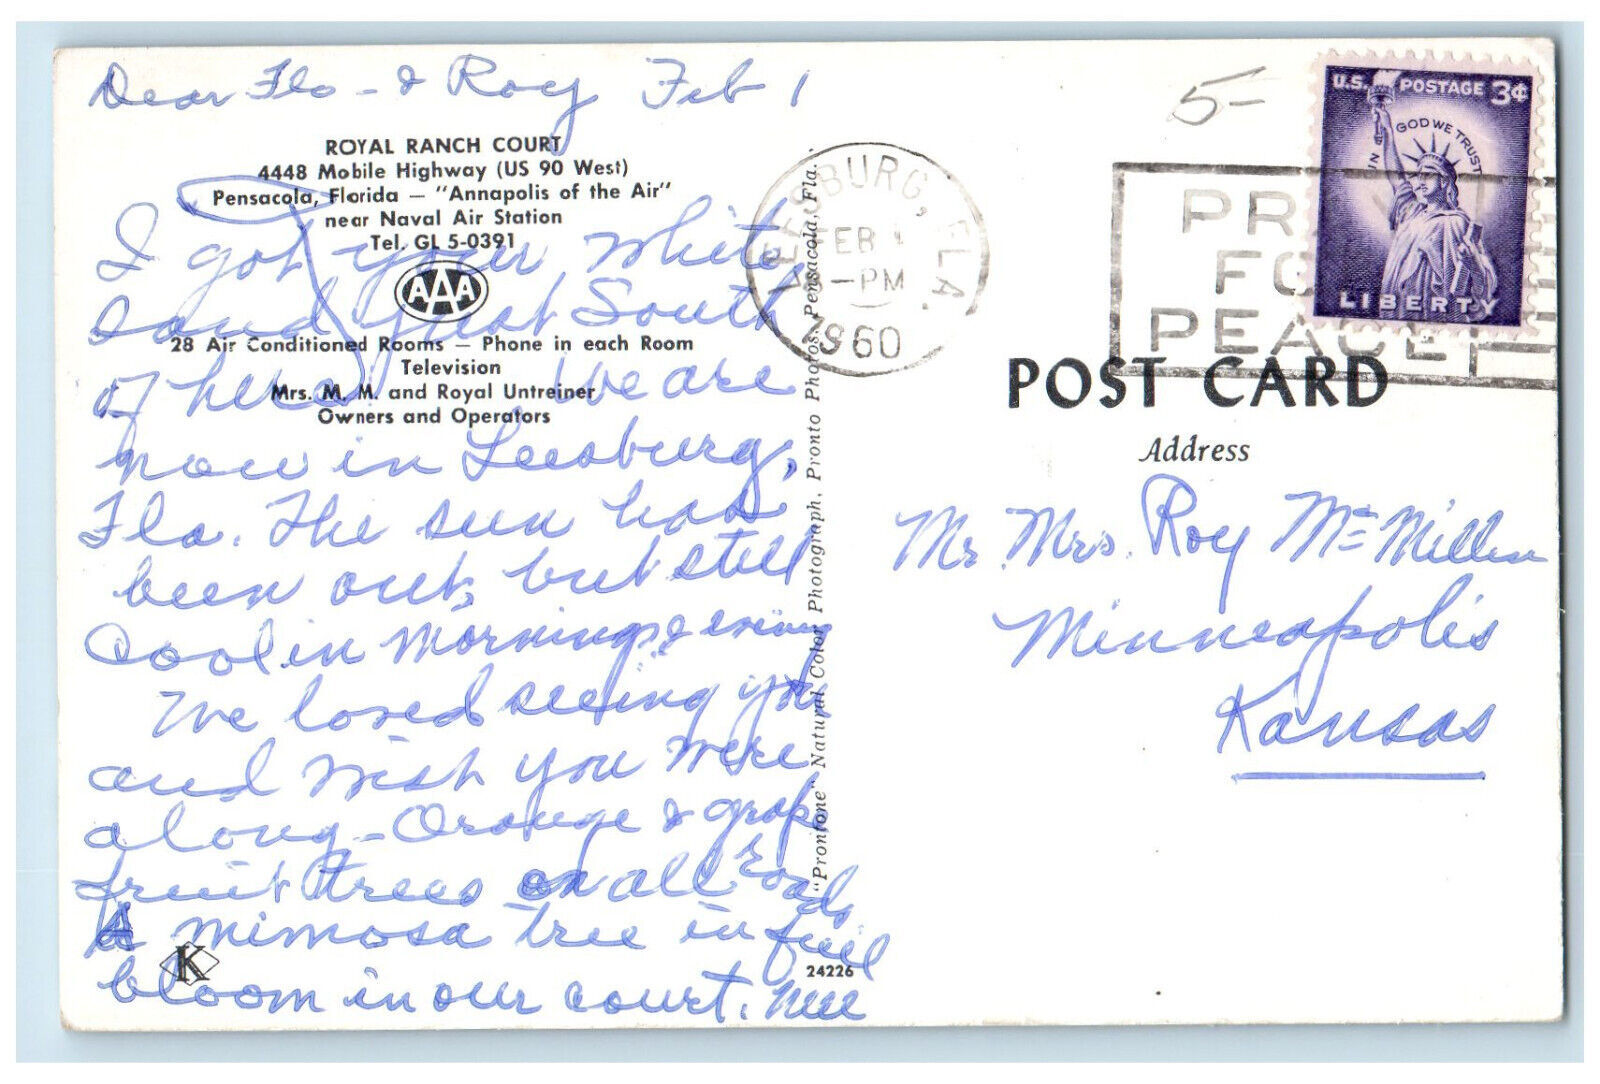 Dear Flo - & Roy Feb 1
ROYAL RANCH COURT
4448 Mobile Highway (US 90 West)
Pensacola, Florida — "Annapolis of the Air"
near Naval Air Station
Tel. GL 5-0391
AAA
28 Air Conditioned Rooms — Phone in each Room
Television
Mrs. M. M. and Royal Untreiner
Owners and Operators
I got your white
sand just South
of here. We are
now in Leesburg,
Fla. The sun has
been out, but still
cool in mornings &
We loved seeing you
and wish you were
along - Orange & grape
fruit trees on all roads
A mimosa tree in full
bloom in our court.
K
24226
"Prontone" Natural Color Photograph, Pronto Photos, Pensacola, Fla.
5-
LEESBURG, FLA.
FEB 1
-PM
1960
PRAY
FOR
PEACE
U.S. POSTAGE 3¢
IN GOD WE TRUST
LIBERTY
POST CARD
Address
Mr. Mrs. Roy McMillen
Minneapolis
Kansas